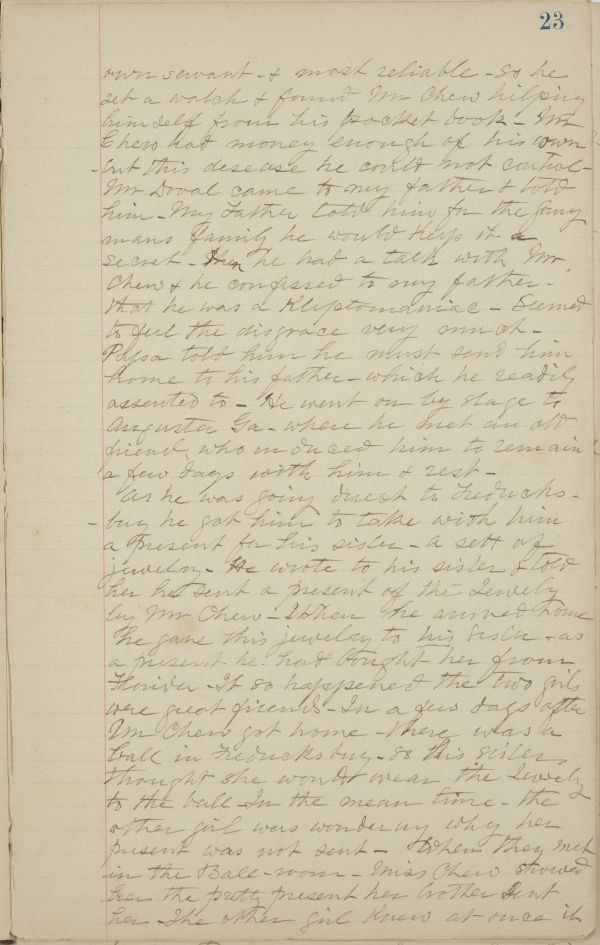 23
own servant - & most reliable - so he
set a watch & found Mr Chew helping
himself from his pocket book - Mr
Chew had money enough of his own
but this desease he could not control -
Mr Doval came to my father & told
him - My Father told him for the young
mans family he would keep it a
secret - Then he had a talk with Mr
Chew & he confessed to my father -
that he was a Kleptomaniac - Seemed
to feel the disgrace very much -
Papa told him he must send him
home to his father - which he readily
assented to - He went on by stage to
Augusta Ga - where he met an old
friend, who induced him to remain
a few days with him & rest -
As he was going direct to Fredricks-
burg he got him to take with him
a present for his sister - a sett of
jewelry - He wrote to his sister & told
her he sent a present of the Jewelry
by Mr Chew - When he arrived home
he gave this jewelry to his sister - as
a present he had bought her from
Florida - It so happened the two girls
were great friends - In a few days after
Mr Chew got home - there was a
ball in Fredricksburg - so this sister
thought she would wear the Jewelry
to the ball - In the mean time - the
other girl was wondering why her
present was not sent - When they met
in the Ball-room - Miss Chew showed
her the pretty present her brother sent
her - The other girl knew at once it